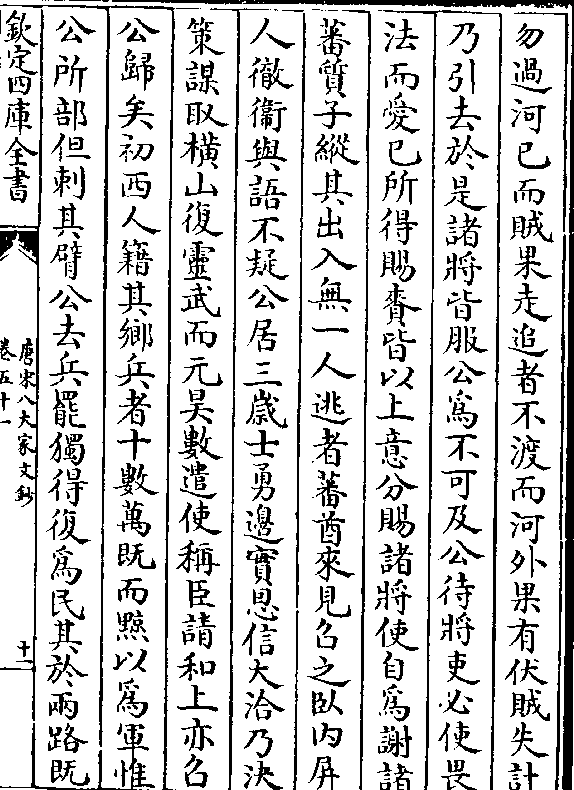 勿過河已而賊果走追者不渡而河外果有伏賊失計
乃引去於是諸將皆服公爲不可及公待將吏必使畏
法而愛已所得賜賚皆以上意分賜諸將使自爲謝諸
蕃質子縱其出入無一人逃者蕃酋來見召之臥内屏
人徹衞與語不疑公居三歲士勇邊實恩信大洽乃決
策謀取横山復靈武而元昊數遣使稱臣請和上亦召
公歸矣初西人籍其鄉兵者十數萬既而黥以爲軍惟
公所部但刺其臂公去兵罷獨得復爲民其於兩路既
欽定四庫全書
唐宋八大家文鈔
卷五十一
十一